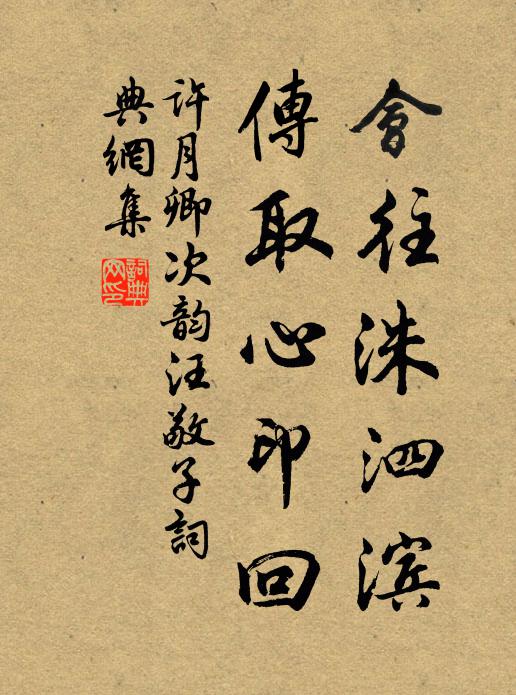 會往洙泗濱
傳取心印回
許月卿次韵汪敬子詞
典網集
詞典网印